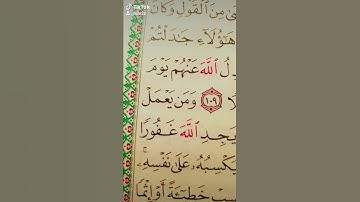 TikTok
ىٰ مِنَ ٱلۡقَوۡلِۚ وَكَانَ
هَٰٓؤُلَآءِ جَٰدَلۡتُمۡ
دِلُ ٱللَّهَ عَنۡهُمۡ يَوۡمَ
لٗا ١٠٩ وَمَن يَعۡمَلۡ
يَجِدِ ٱللَّهَ غَفُورٗا
يَكۡسِبُهُۥ عَلَىٰ نَفۡسِهِۦۚ
سِبۡ خَطِيٓـَٔةً أَوۡ إِثۡمٗا